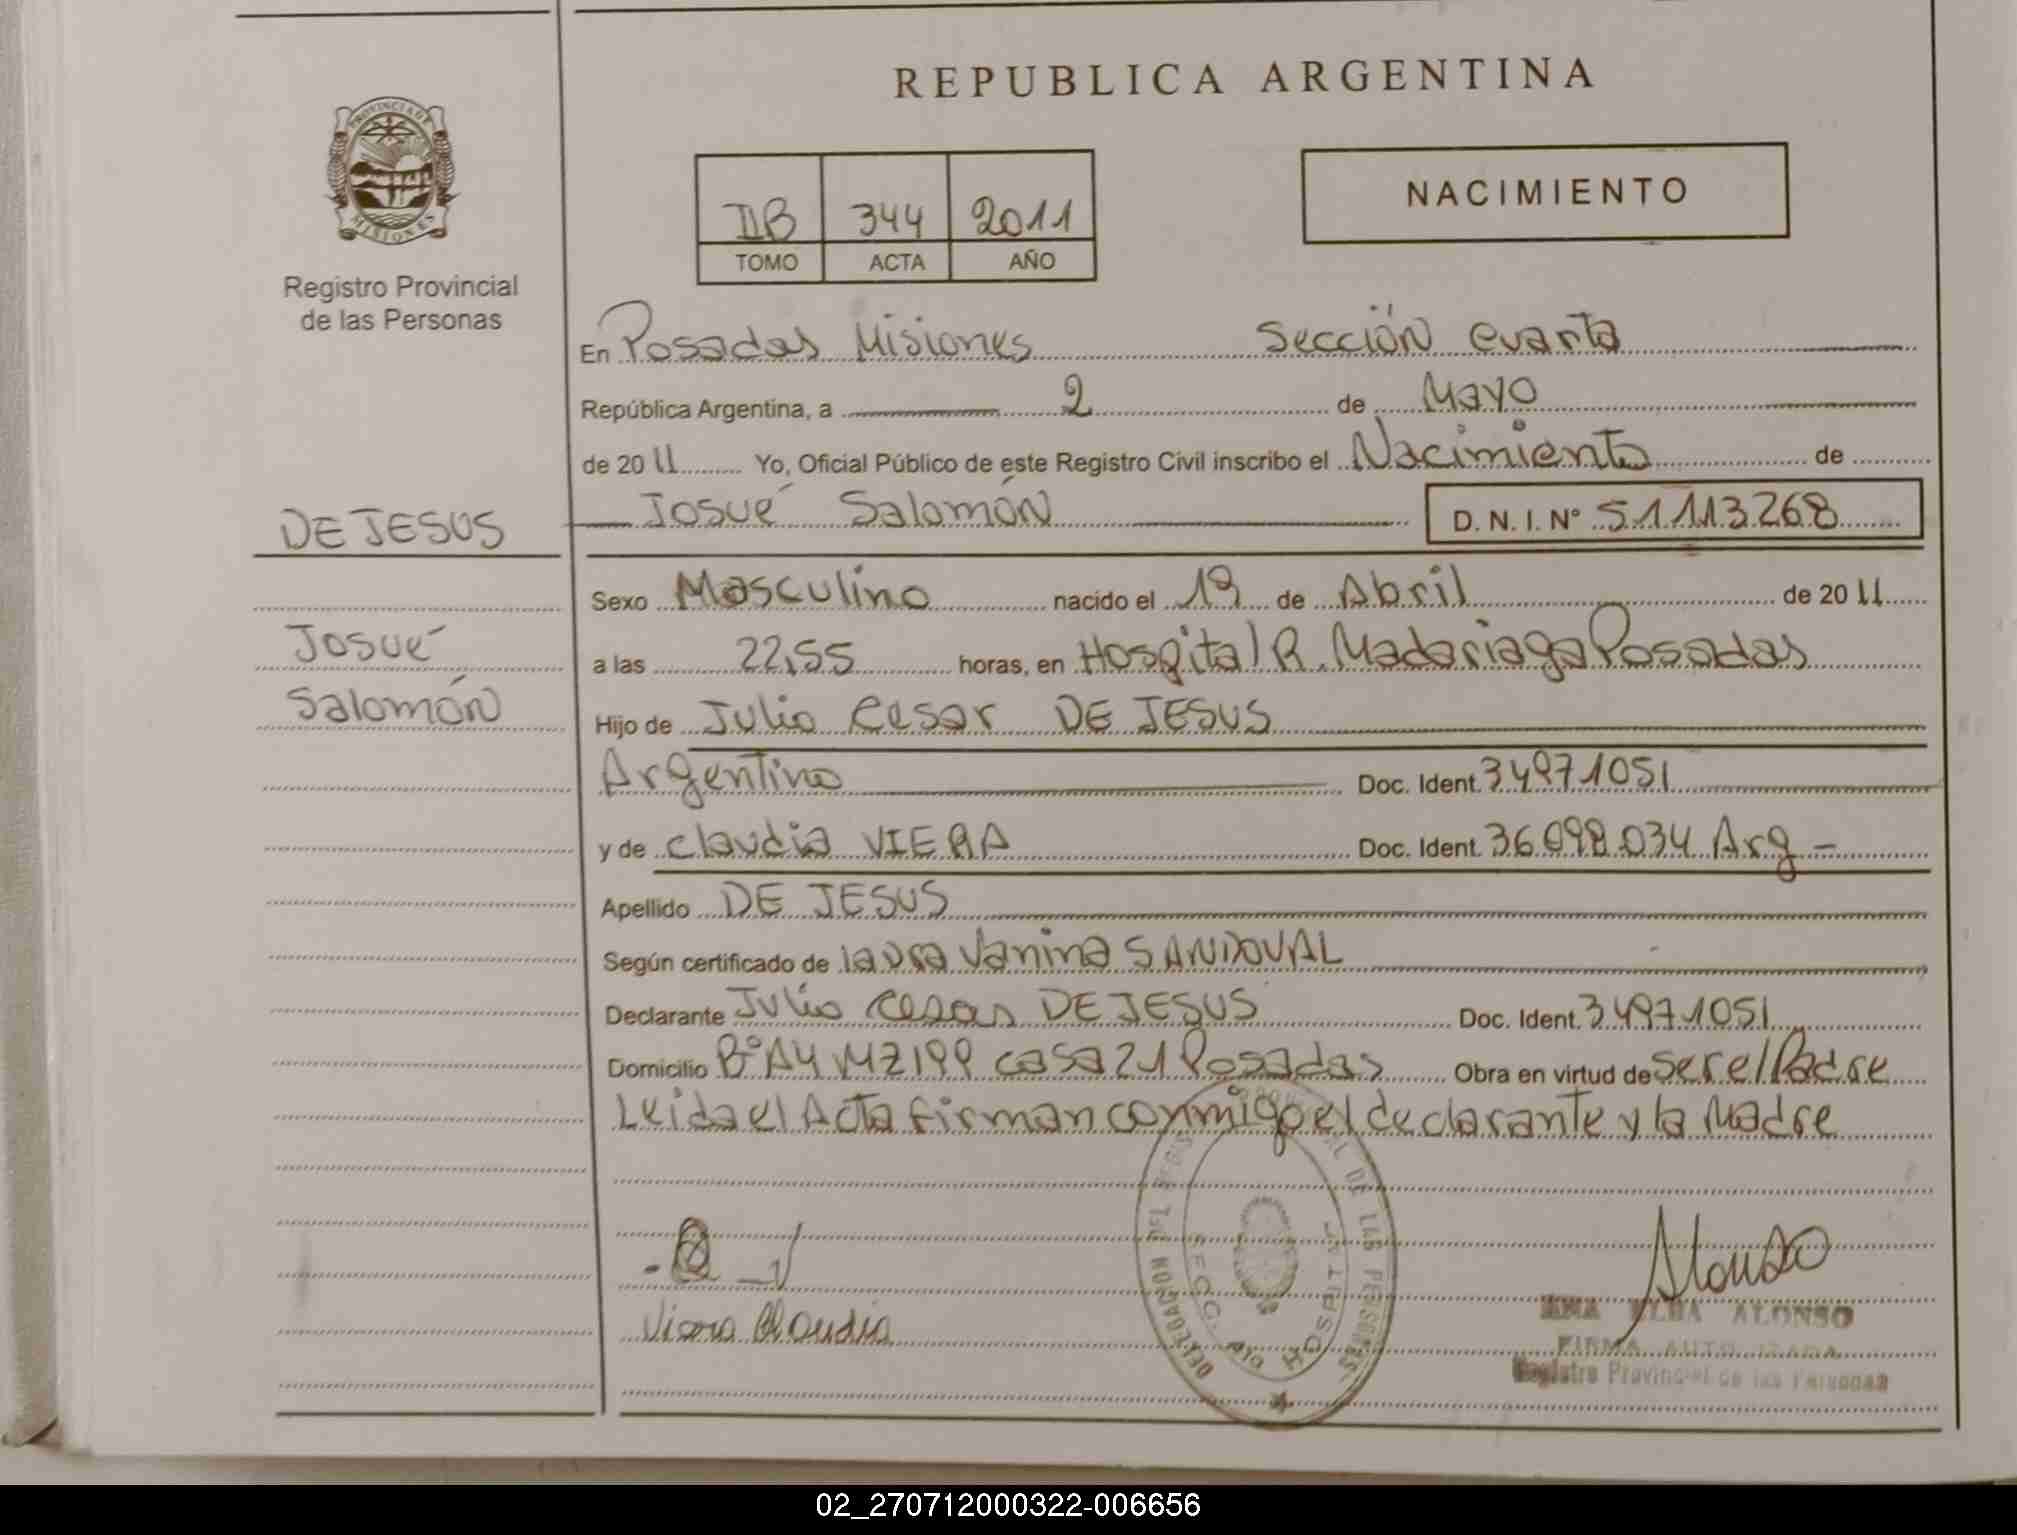 REPUBLICA ARGENTINA
PROVINCIA DE MISIONES
Registro Provincial
de las Personas
IIB 344 2011
TOMO ACTA AÑO
NACIMIENTO
En Posadas Misiones Sección cuarta
República Argentina, a 2 de Mayo
de 2011 Yo, Oficial Público de este Registro Civil inscribo el Nacimiento de
Josué Salomón D.N.I. Nº 51113268
DE JESUS
Josué
Salomón
Sexo Masculino nacido el 19 de Abril de 2011
a las 22,55 horas, en Hospital R. Madariaga Posadas
Hijo de Julio Cesar DE JESUS
Argentino Doc. Ident. 34971051
y de Claudia VIERA Doc. Ident. 36.098.034 Arg -
Apellido DE JESUS
Según certificado de laura Vanina SANDOVAL
Declarante Julio Cesar DE JESUS Doc. Ident. 34971051
Domicilio Bº A4 MZ 199 casa 21 Posadas Obra en virtud de ser el Padre
Leida el Acta firman conmigo el declarante y la Madre
Viera Claudia
DELEGACION DEL REGISTRO PROVINCIAL DE LAS PERSONAS
HOSPITAL
Alonso
ANA ELBA ALONSO
FIRMA AUTORIZADA
Registro Provincial de las Personas
02_270712000322-006656